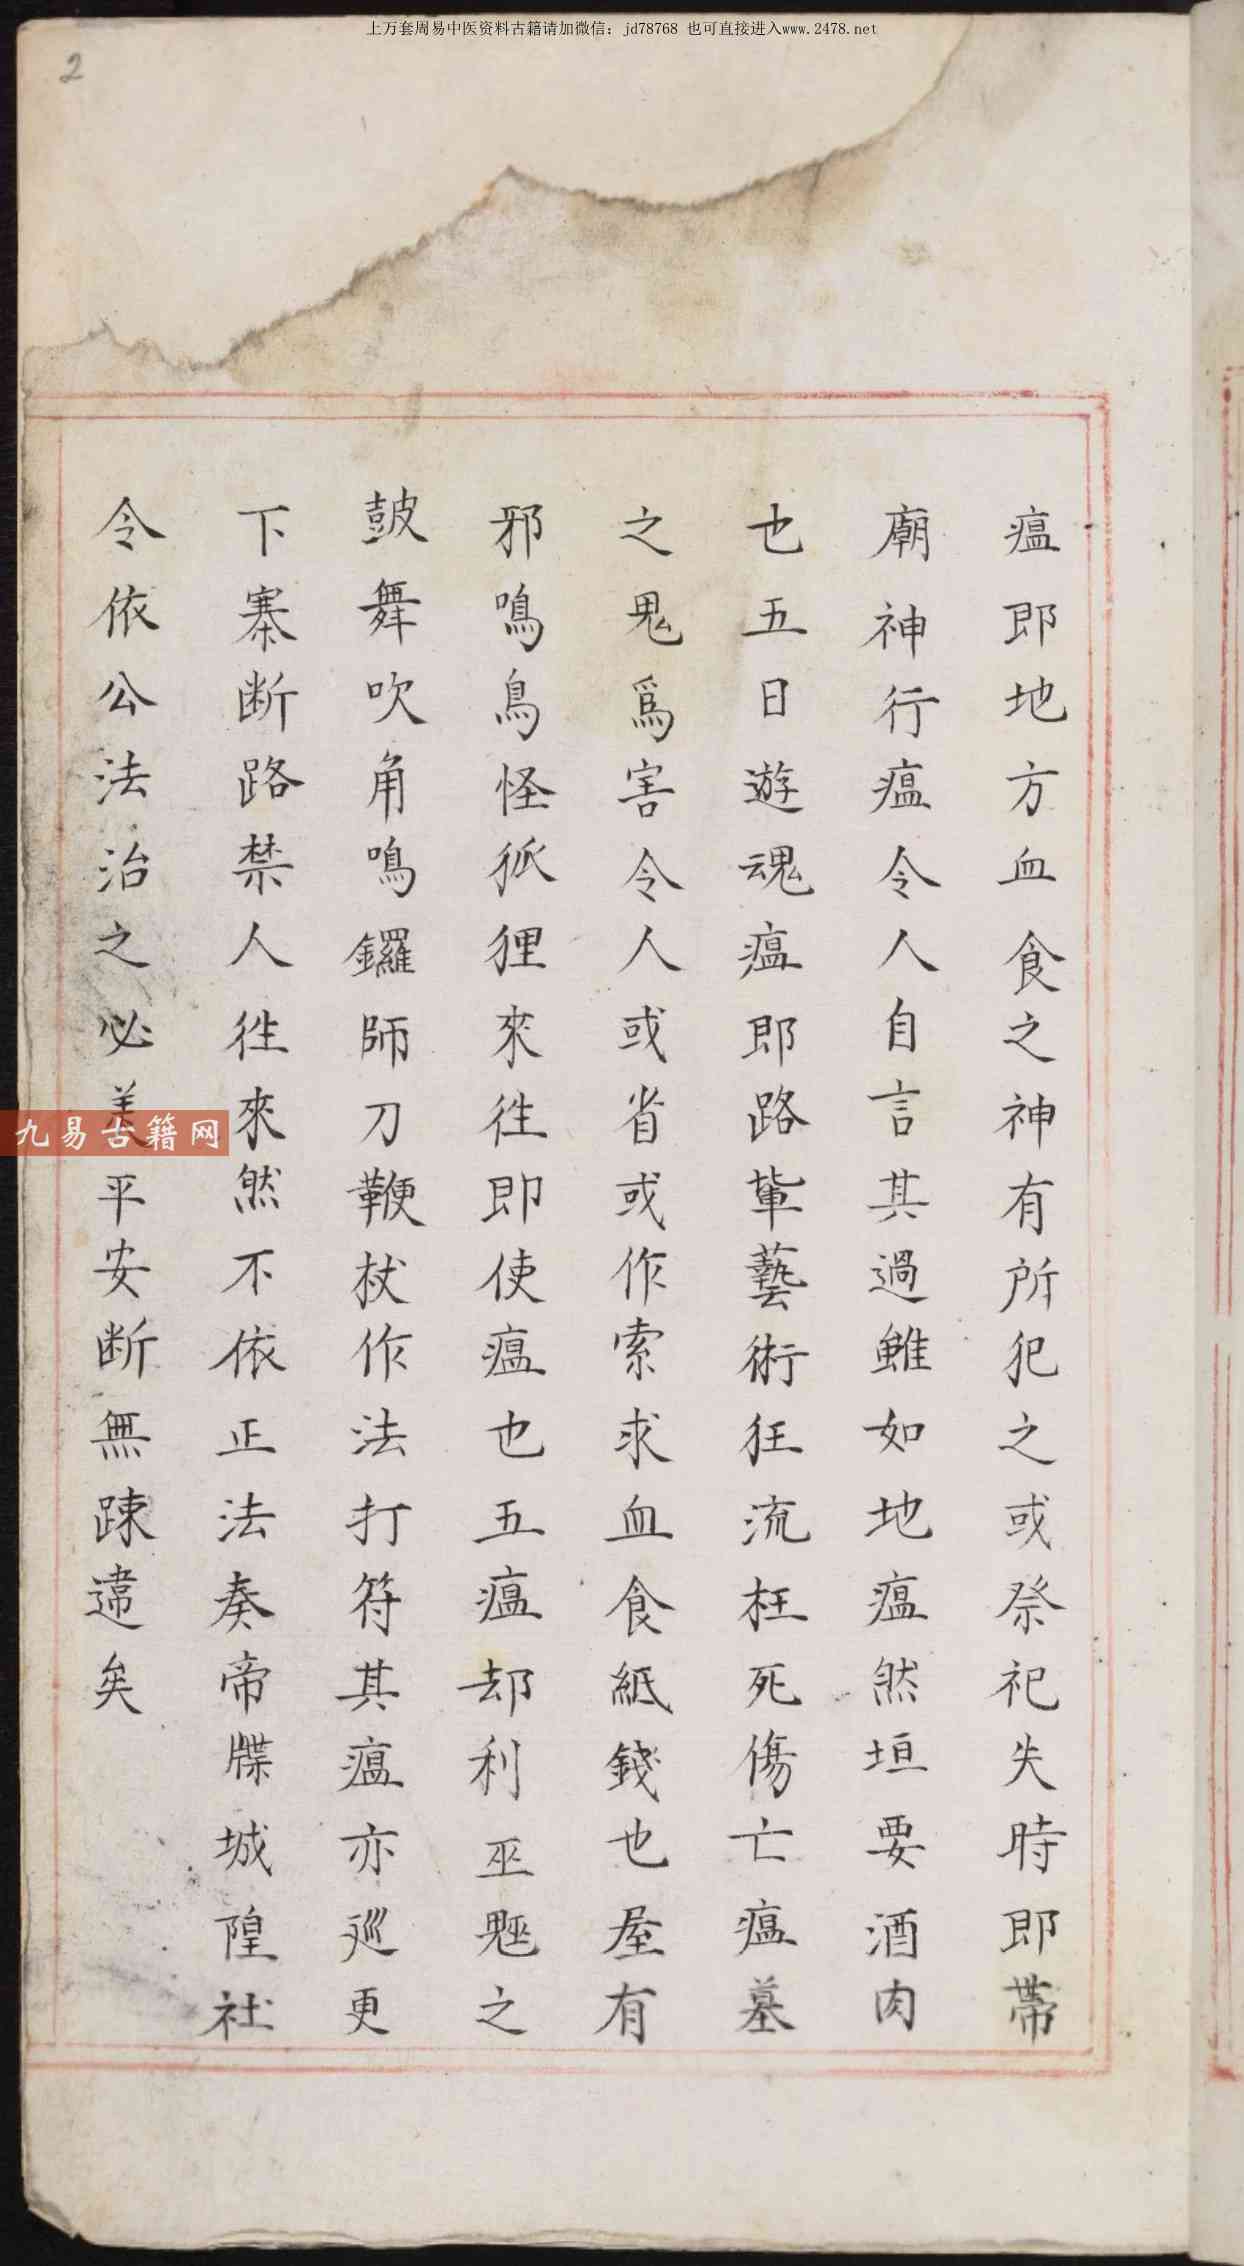 上万套周易中医资料古籍请加微信：jd78768 也可直接进入www.2478.net
2
瘟即地方血食之神有所犯之或祭祀失時即帶
廟神行瘟令人自言其過雖如地瘟然垣要酒肉
也五日遊魂瘟即路輂藝術狂流枉死傷亡瘟墓
之鬼為害令人或省或作索求血食紙錢也屋有
邪鳴鳥怪狐狸來徃即使瘟也五瘟却利巫魘之
皷舞吹角鳴鑼師刀鞭杖作法打符其瘟亦巡更
下寨断路禁人徃來然不依正法奏帝牒城隍社
令依公法治之必平安断無踈違矣
九易古籍网